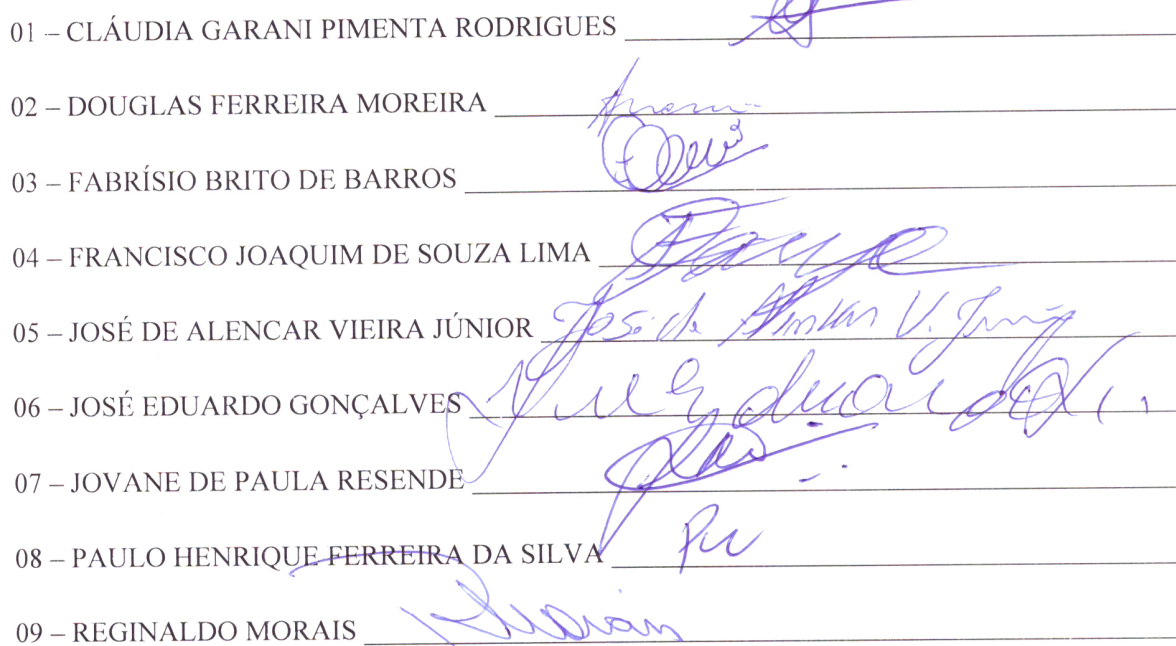 01 – CLÁUDIA GARANI PIMENTA RODRIGUES
02 – DOUGLAS FERREIRA MOREIRA
03 – FABRÍSIO BRITO DE BARROS
04 – FRANCISCO JOAQUIM DE SOUZA LIMA
05 – JOSÉ DE ALENCAR VIEIRA JÚNIOR José de Alencar V. Júnior
06 – JOSÉ EDUARDO GONÇALVES José Eduardo
07 – JOVANE DE PAULA RESENDE
08 – PAULO HENRIQUE FERREIRA DA SILVA
09 – REGINALDO MORAIS